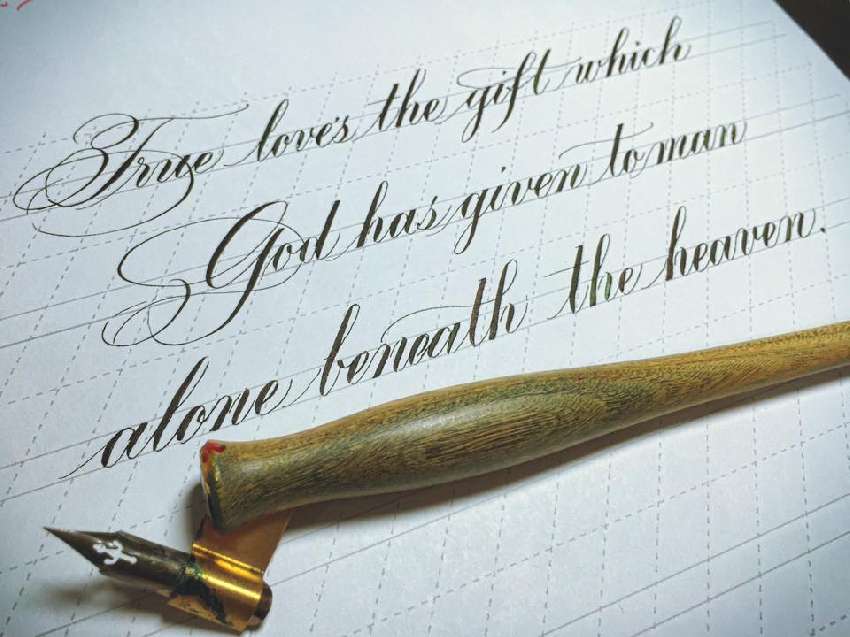 True love's the gift which
God has given to man
alone beneath the heaven.